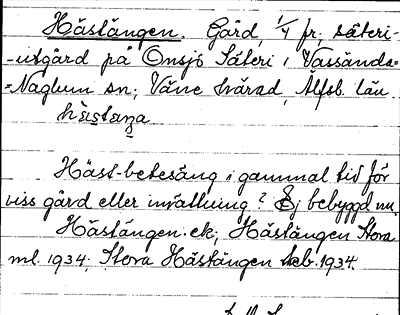 Hästängen. Gård, 1/4 fr. säteri-
-utgård på Onsjö Säteri i Vassända=
=Naglum sn; Väne härad, Älfsb. län.
Häst-betesäng i gammal tid för
viss gård eller inrättning? Ej bebyggd nu.
Hästängen. ek; Hästängen Stora
ml. 1934; Stora Hästängen heb. 1934.